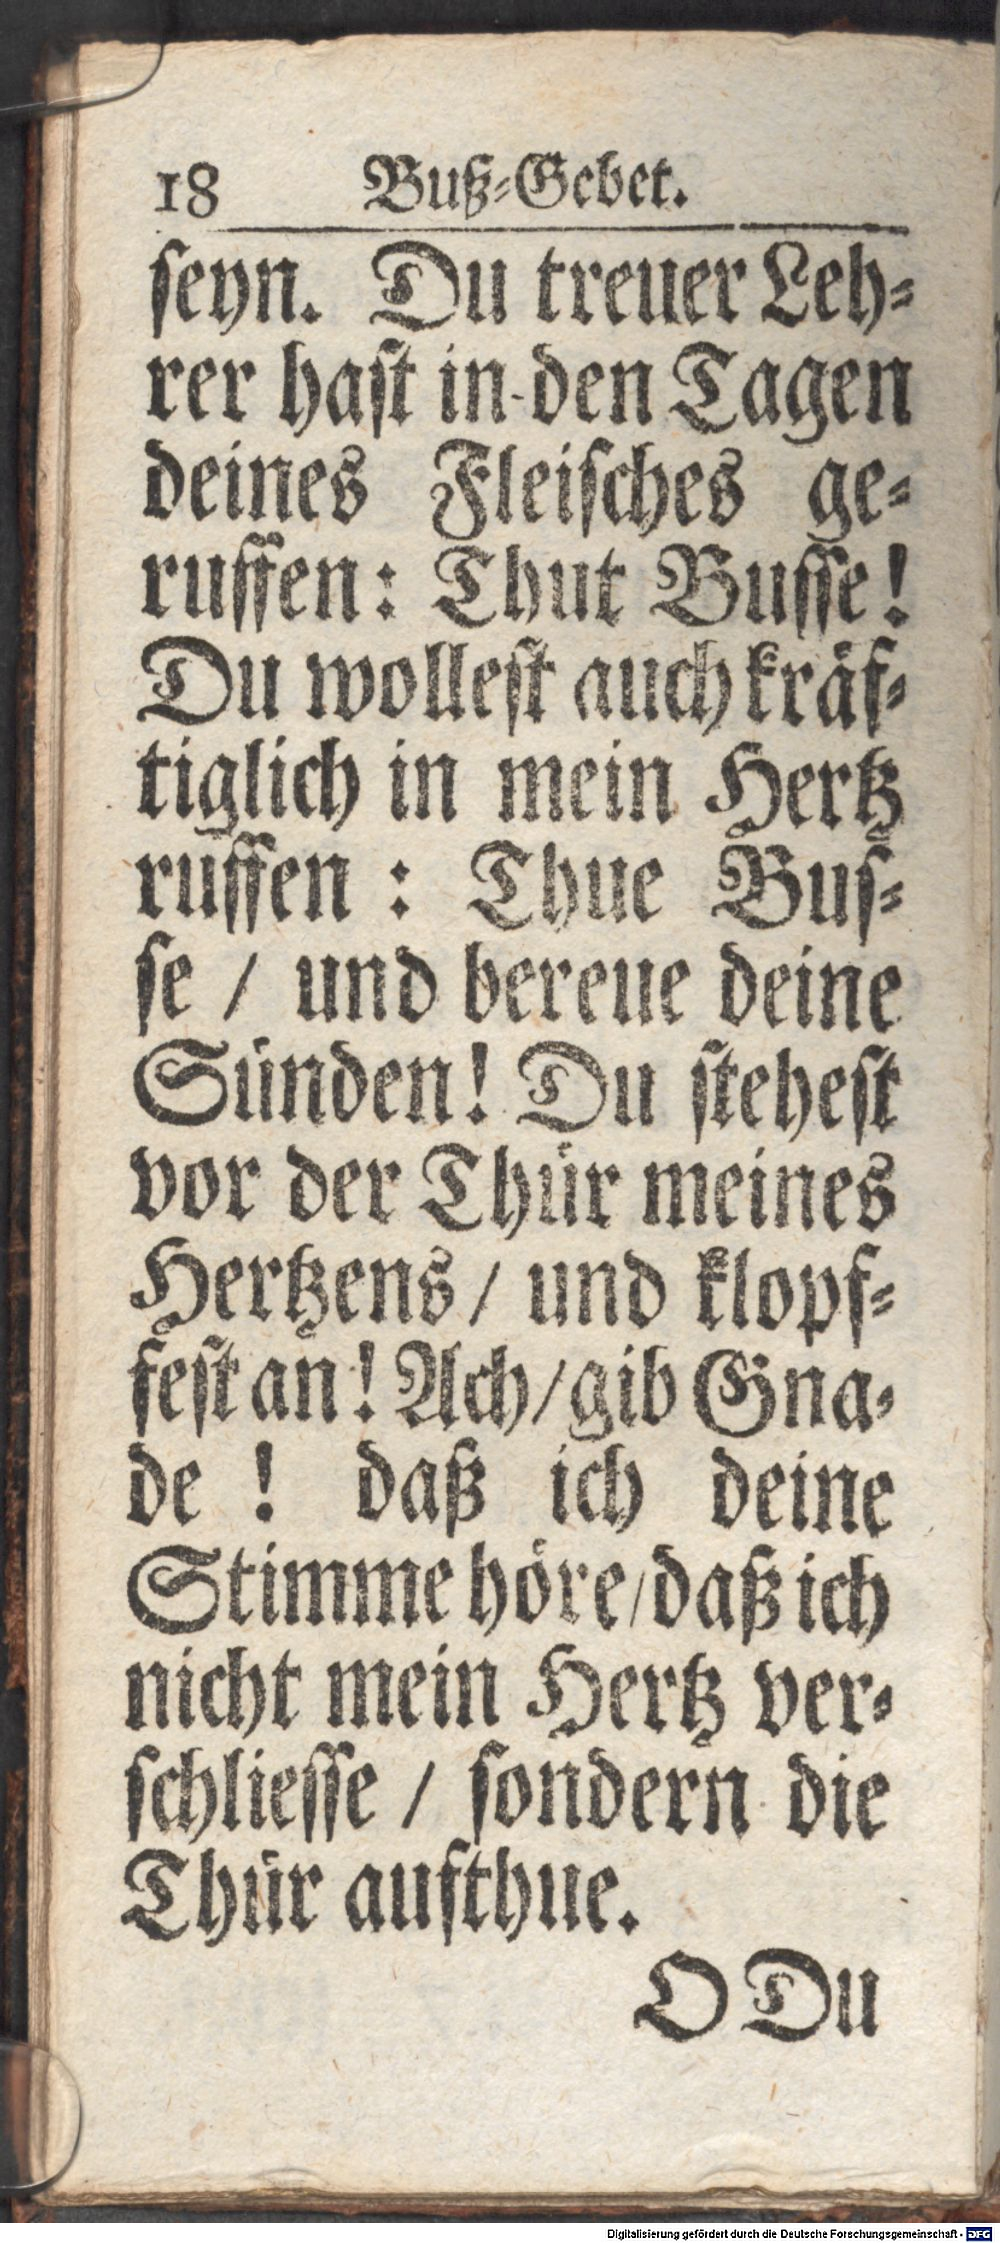 18 Buß-Gebet.
seyn. Du treuer Leh-
rer hast in den Tagen
deines Fleisches ge-
ruffen: Thut Busse!
Du wollest auch kräf-
tiglich in mein Hertz
ruffen : Thue Bus-
se / und bereue deine
Sünden! Du stehest
vor der Thür meines
Hertzens / und klopf-
fest an! Ach / gib Gna-
de ! daß ich deine
Stimme höre / daß ich
nicht mein Hertz ver-
schliesse / sondern die
Thür aufthue.
O Du
Digitalisierung gefördert durch die Deutsche Forschungsgemeinschaft - DFG